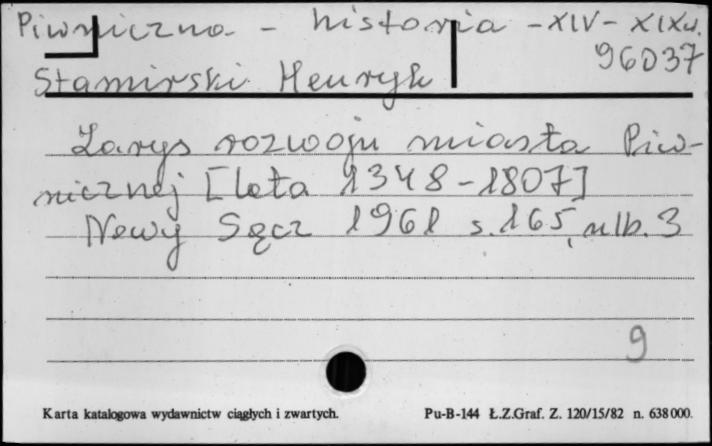 Piwniczna - historia - XIV - XIX w.
96037
Stamirski Henryk
Zarys rozwoju miasta Piw-
nicznej [lata 1348-1807]
Nowy Sącz 1961 s. 165, nlb. 3
9
Karta katalogowa wydawnictw ciągłych i zwartych. Pu-B-144 Ł.Z.Graf. Z. 120/15/82 n. 638000.